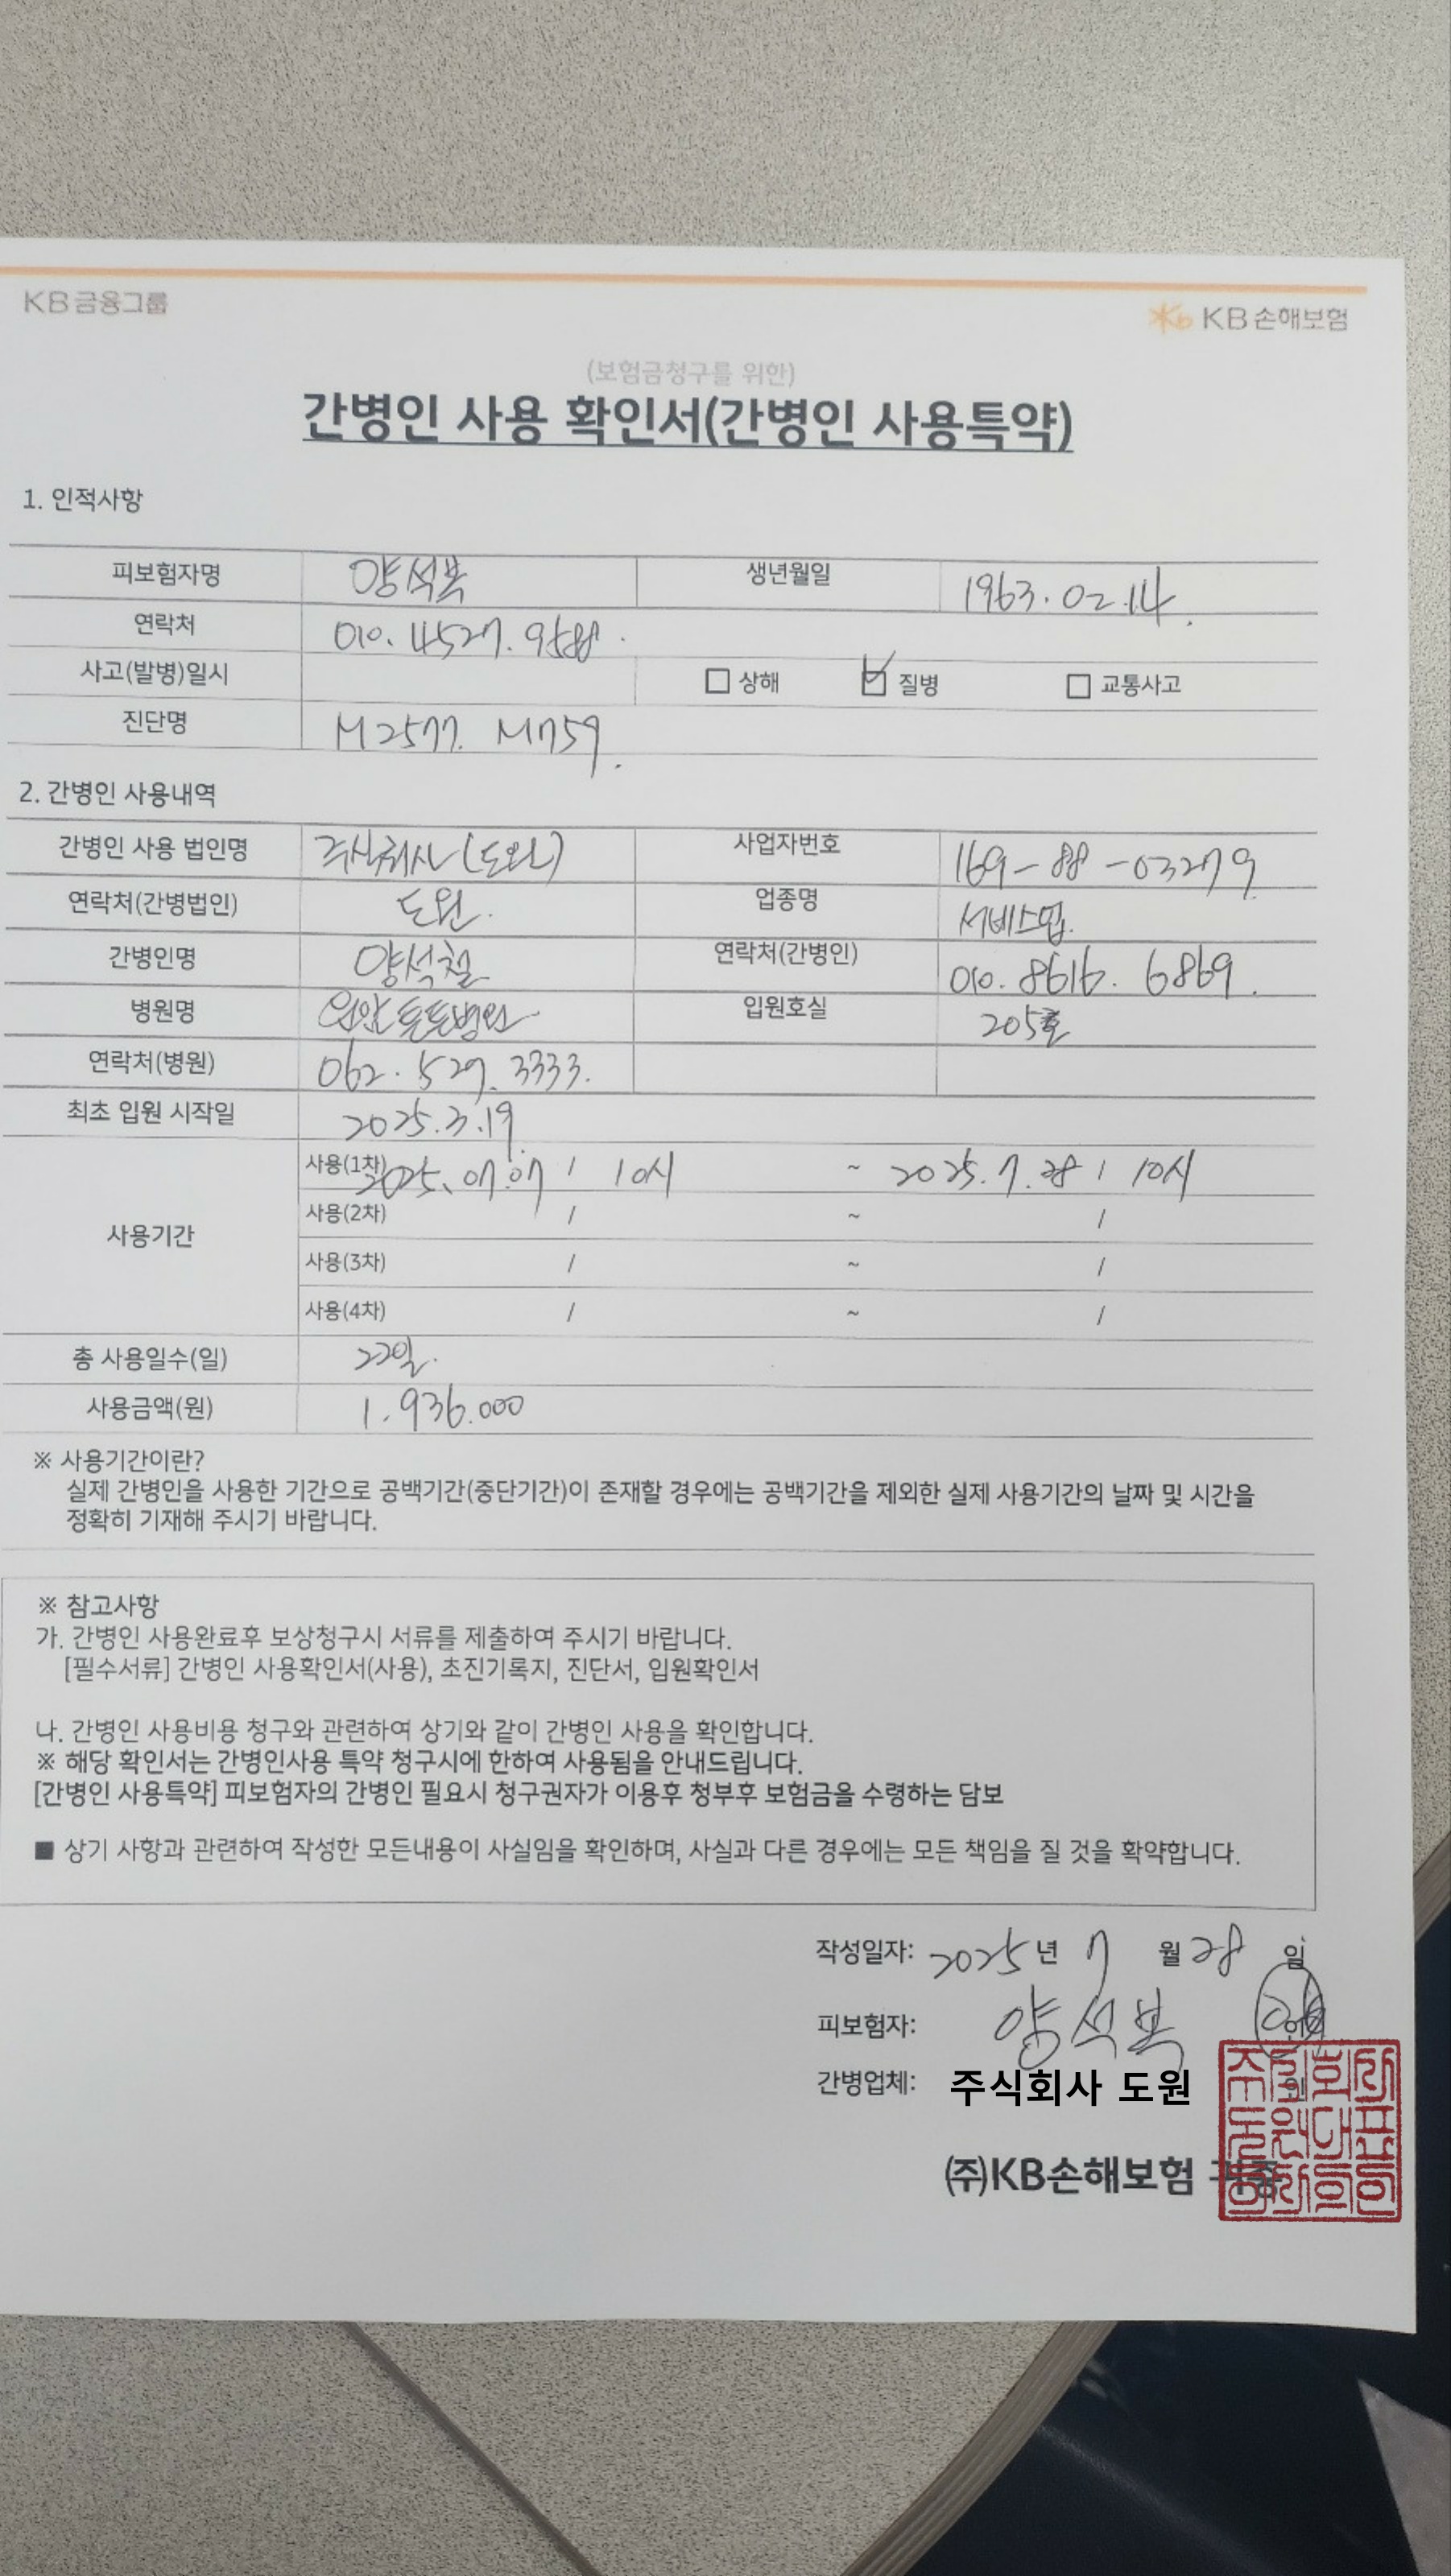 KB금융그룹
KB손해보험
(보험금청구를 위한)
간병인 사용 확인서(간병인 사용특약)
1. 인적사항
피보험자명 양석복 생년월일 1963.02.14.
연락처 010.4527.9588.
사고(발병)일시 □ 상해 ☑ 질병 □ 교통사고
진단명 M2577. M759.
2. 간병인 사용내역
간병인 사용 법인명 주식회사(도원) 사업자번호 169-88-03279
연락처(간병법인) 도원. 업종명 서비스업.
간병인명 양석철 연락처(간병인) 010.8616.6869.
병원명 입원호실 205호
연락처(병원) 062.529.3333.
최초 입원 시작일 2025.3.19.
사용기간
사용(1차) 2025.07.07 / 10시 ~ 2025.7.28 / 10시
사용(2차) / ~ /
사용(3차) / ~ /
사용(4차) / ~ /
총 사용일수(일) 22일.
사용금액(원) 1.936.000
※ 사용기간이란?
실제 간병인을 사용한 기간으로 공백기간(중단기간)이 존재할 경우에는 공백기간을 제외한 실제 사용기간의 날짜 및 시간을
정확히 기재해 주시기 바랍니다.
※ 참고사항
가. 간병인 사용완료후 보상청구시 서류를 제출하여 주시기 바랍니다.
[필수서류] 간병인 사용확인서(사용), 초진기록지, 진단서, 입원확인서
나. 간병인 사용비용 청구와 관련하여 상기와 같이 간병인 사용을 확인합니다.
※ 해당 확인서는 간병인사용 특약 청구시에 한하여 사용됨을 안내드립니다.
[간병인 사용특약] 피보험자의 간병인 필요시 청구권자가 이용후 청부후 보험금을 수령하는 담보
■ 상기 사항과 관련하여 작성한 모든내용이 사실임을 확인하며, 사실과 다른 경우에는 모든 책임을 질 것을 확약합니다.
작성일자: 2025년 7 월 28 일
피보험자: 양석복
간병업체: 주식회사 도원 인
㈜KB손해보험 귀중